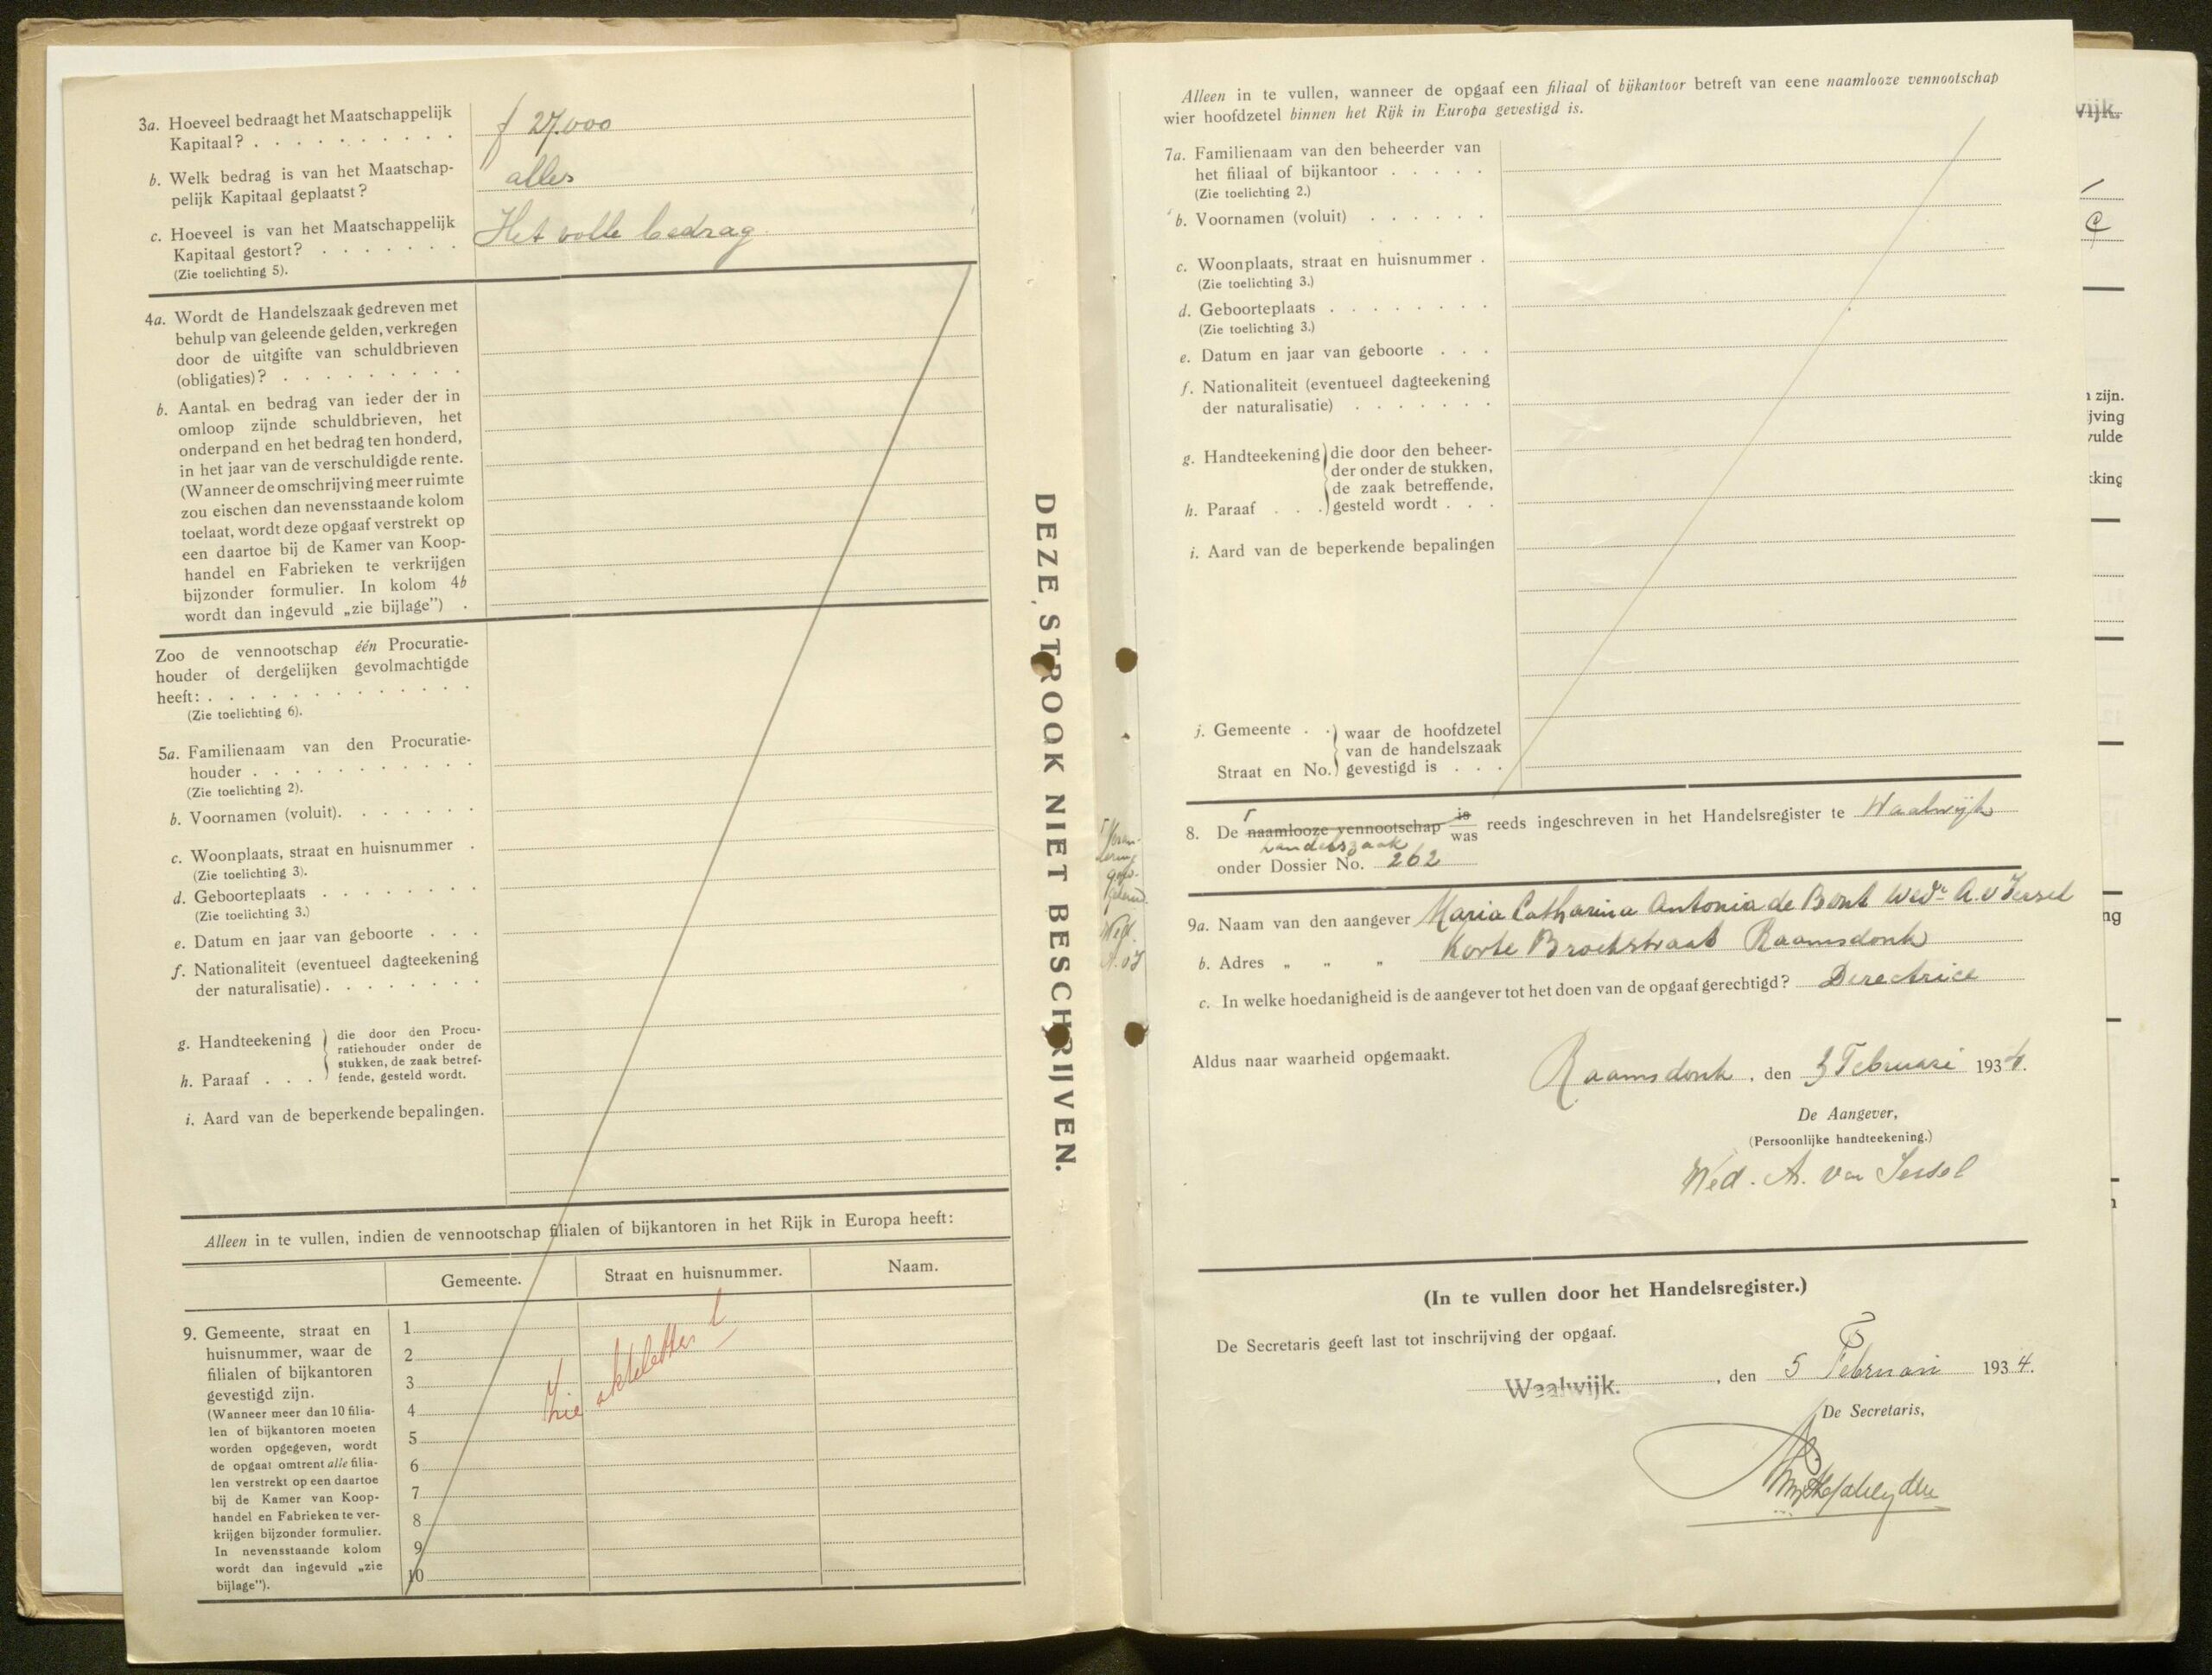 3a. Hoeveel bedraagt het Maatschappelijk
Kapitaal? . . . . . . . . . . f 27.000
b. Welk bedrag is van het Maatschap-
pelijk Kapitaal geplaatst? alles
c. Hoeveel is van het Maatschappelijk
Kapitaal gestort? . . . . . . . Het volle bedrag
(Zie toelichting 5).
4a. Wordt de Handelszaak gedreven met
behulp van geleende gelden, verkregen
door de uitgifte van schuldbrieven
(obligaties)? . . . . . . . . .
b. Aantal en bedrag van ieder der in
omloop zijnde schuldbrieven, het
onderpand en het bedrag ten honderd,
in het jaar van de verschuldigde rente.
(Wanneer de omschrijving meer ruimte
zou eischen dan nevensstaande kolom
toelaat, wordt deze opgaaf verstrekt op
een daartoe bij de Kamer van Koop-
handel en Fabrieken te verkrijgen
bijzonder formulier. In kolom 4b
wordt dan ingevuld „zie bijlage”) .
Zoo de vennootschap één Procuratie-
houder of dergelijken gevolmachtigde
heeft: . . . . . . . . . . . . .
(Zie toelichting 6).
5a. Familienaam van den Procuratie-
houder . . . . . . . . . . .
(Zie toelichting 2).
b. Voornamen (voluit). . . . . . .
c. Woonplaats, straat en huisnummer .
(Zie toelichting 3).
d. Geboorteplaats . . . . . . . .
(Zie toelichting 3.)
e. Datum en jaar van geboorte . . .
f. Nationaliteit (eventueel dagteekening
der naturalisatie). . . . . . . .
g. Handteekening die door den Procu-
ratiehouder onder de
stukken, de zaak betref-
h. Paraaf . . . fende, gesteld wordt.
i. Aard van de beperkende bepalingen.
Alleen in te vullen, indien de vennootschap filialen of bijkantoren in het Rijk in Europa heeft:
Gemeente. Straat en huisnummer. Naam.
9. Gemeente, straat en
huisnummer, waar de
filialen of bijkantoren
gevestigd zijn.
(Wanneer meer dan 10 filia-
len of bijkantoren moeten
worden opgegeven, wordt
de opgaaf omtrent alle filia-
len verstrekt op een daartoe
bij de Kamer van Koop-
handel en Fabrieken te ver-
krijgen bijzonder formulier.
In nevensstaande kolom
wordt dan ingevuld „zie
bijlage”).
1
2
3
4
5
6
7
8
9
10
Zie
DEZE STROOK NIET BESCHRIJVEN.
Wed.
Alleen in te vullen, wanneer de opgaaf een filiaal of bijkantoor betreft van eene naamlooze vennootschap
wier hoofdzetel binnen het Rijk in Europa gevestigd is.
7a. Familienaam van den beheerder van
het filiaal of bijkantoor . . . . .
(Zie toelichting 2.)
b. Voornamen (voluit) . . . . . .
c. Woonplaats, straat en huisnummer .
(Zie toelichting 3.)
d. Geboorteplaats . . . . . . . .
(Zie toelichting 3.)
e. Datum en jaar van geboorte . . .
f. Nationaliteit (eventueel dagteekening
der naturalisatie) . . . . . . .
g. Handteekening die door den beheer-
der onder de stukken,
de zaak betreffende,
h. Paraaf . . . gesteld wordt . . .
i. Aard van de beperkende bepalingen
j. Gemeente . . waar de hoofdzetel
van de handelszaak
Straat en No. gevestigd is . . .
8. De naamlooze vennootschap is was reeds ingeschreven in het Handelsregister te Waalwijk
handelszaak
onder Dossier No. 262
9a. Naam van den aangever Maria Catharina Antonia de Bont Wedr A. v Iersel
b. Adres „ „ „ Korte Broekstraat Raamsdonk
c. In welke hoedanigheid is de aangever tot het doen van de opgaaf gerechtigd? Derectrice
Aldus naar waarheid opgemaakt.
Raamsdonk, den 3 Februari 1934.
De Aangever,
(Persoonlijke handteekening.)
Wed. A. van Iersel
(In te vullen door het Handelsregister.)
De Secretaris geeft last tot inschrijving der opgaaf.
Waalwijk. , den 5 Februari 1934.
De Secretaris,
wijk.
zijn.
jving
vulde
kking
ng